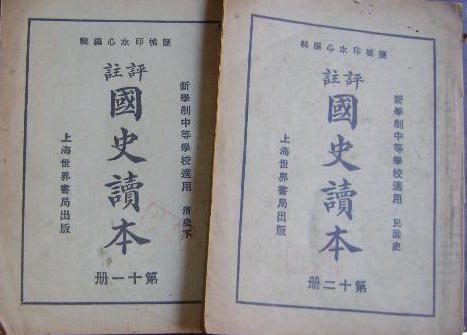 鹽城印水心編輯
新學制中等學校適用 清史下
評註
國史讀本
上海世界書局出版
第十一冊
鹽城印水心編輯
新學制中等學校適用 民國史
評註
國史讀本
上海世界書局出版
第十二冊